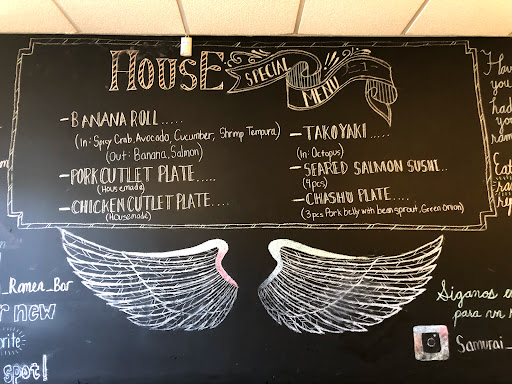 HOUSE
SPECIAL
MENU
- BANANA ROLL.....
(In: Spicy Crab, Avocado, Cucumber, Shrimp Tempura)
(Out: Banana, Salmon)
- PORK CUTLET PLATE.....
(Housemade)
- CHICKEN CUTLET PLATE....
(Housemade)
- TAKOYAKI.....
(In: Octopus)
- SEARED SALMON SUSHI..
(4pcs)
- CHASHU PLATE....
(3pcs Pork belly with bean sprout, Green onion)
Hav
you
had
you
ram
Eat
_Ramen_Bar
r new
rite
spot!
Siganos e
para un
Samurai_